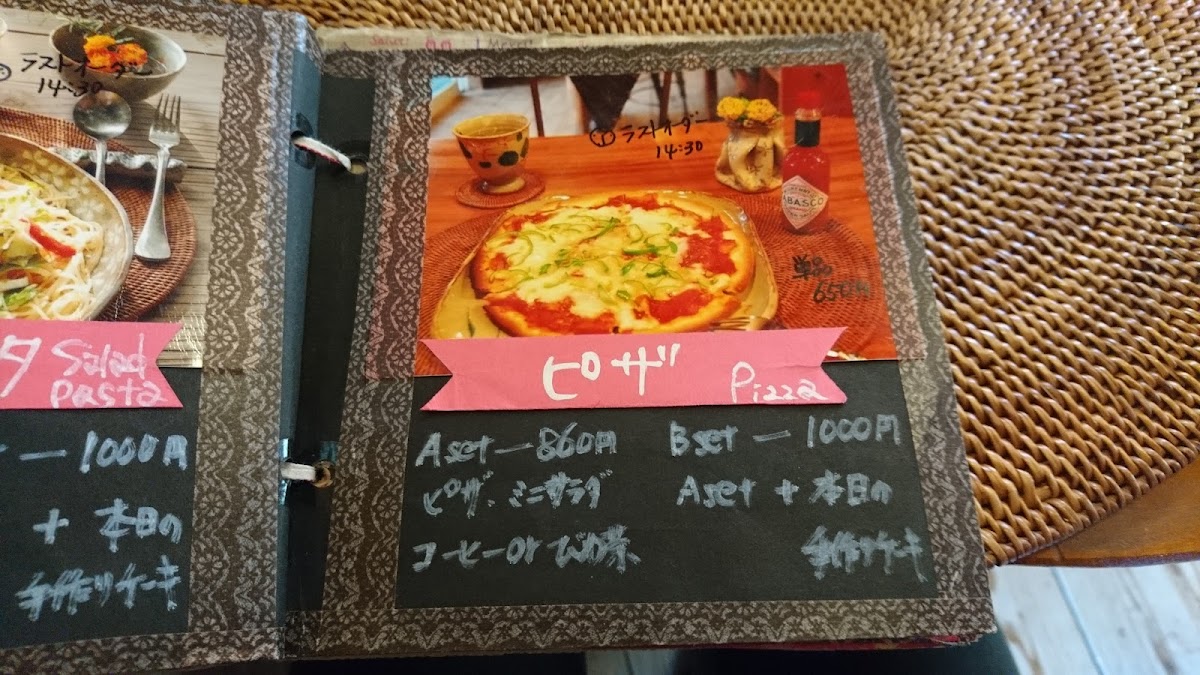 ラストオーダー
14:30
タ Salad
pasta
ー 1000円
+ 本日の
手作りケーキ
ラストオーダー
14:30
BASCO
単品
650円
ピザ Pizza
Aset ー 860円
ピザ・ミニサラダ
コーヒーorびわ茶
Bset ー 1000円
Aset + 本日の
手作りケーキ